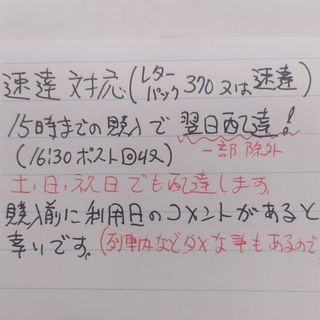 速達対応(レターパック370又は速達)
15時までの購入で翌日配達!
一部除外
(16:30ポスト回収)
土,日,祝日でも配達します。
購入前に利用日のコメントがあると
幸いです。(列車内などダメな事もあるので)